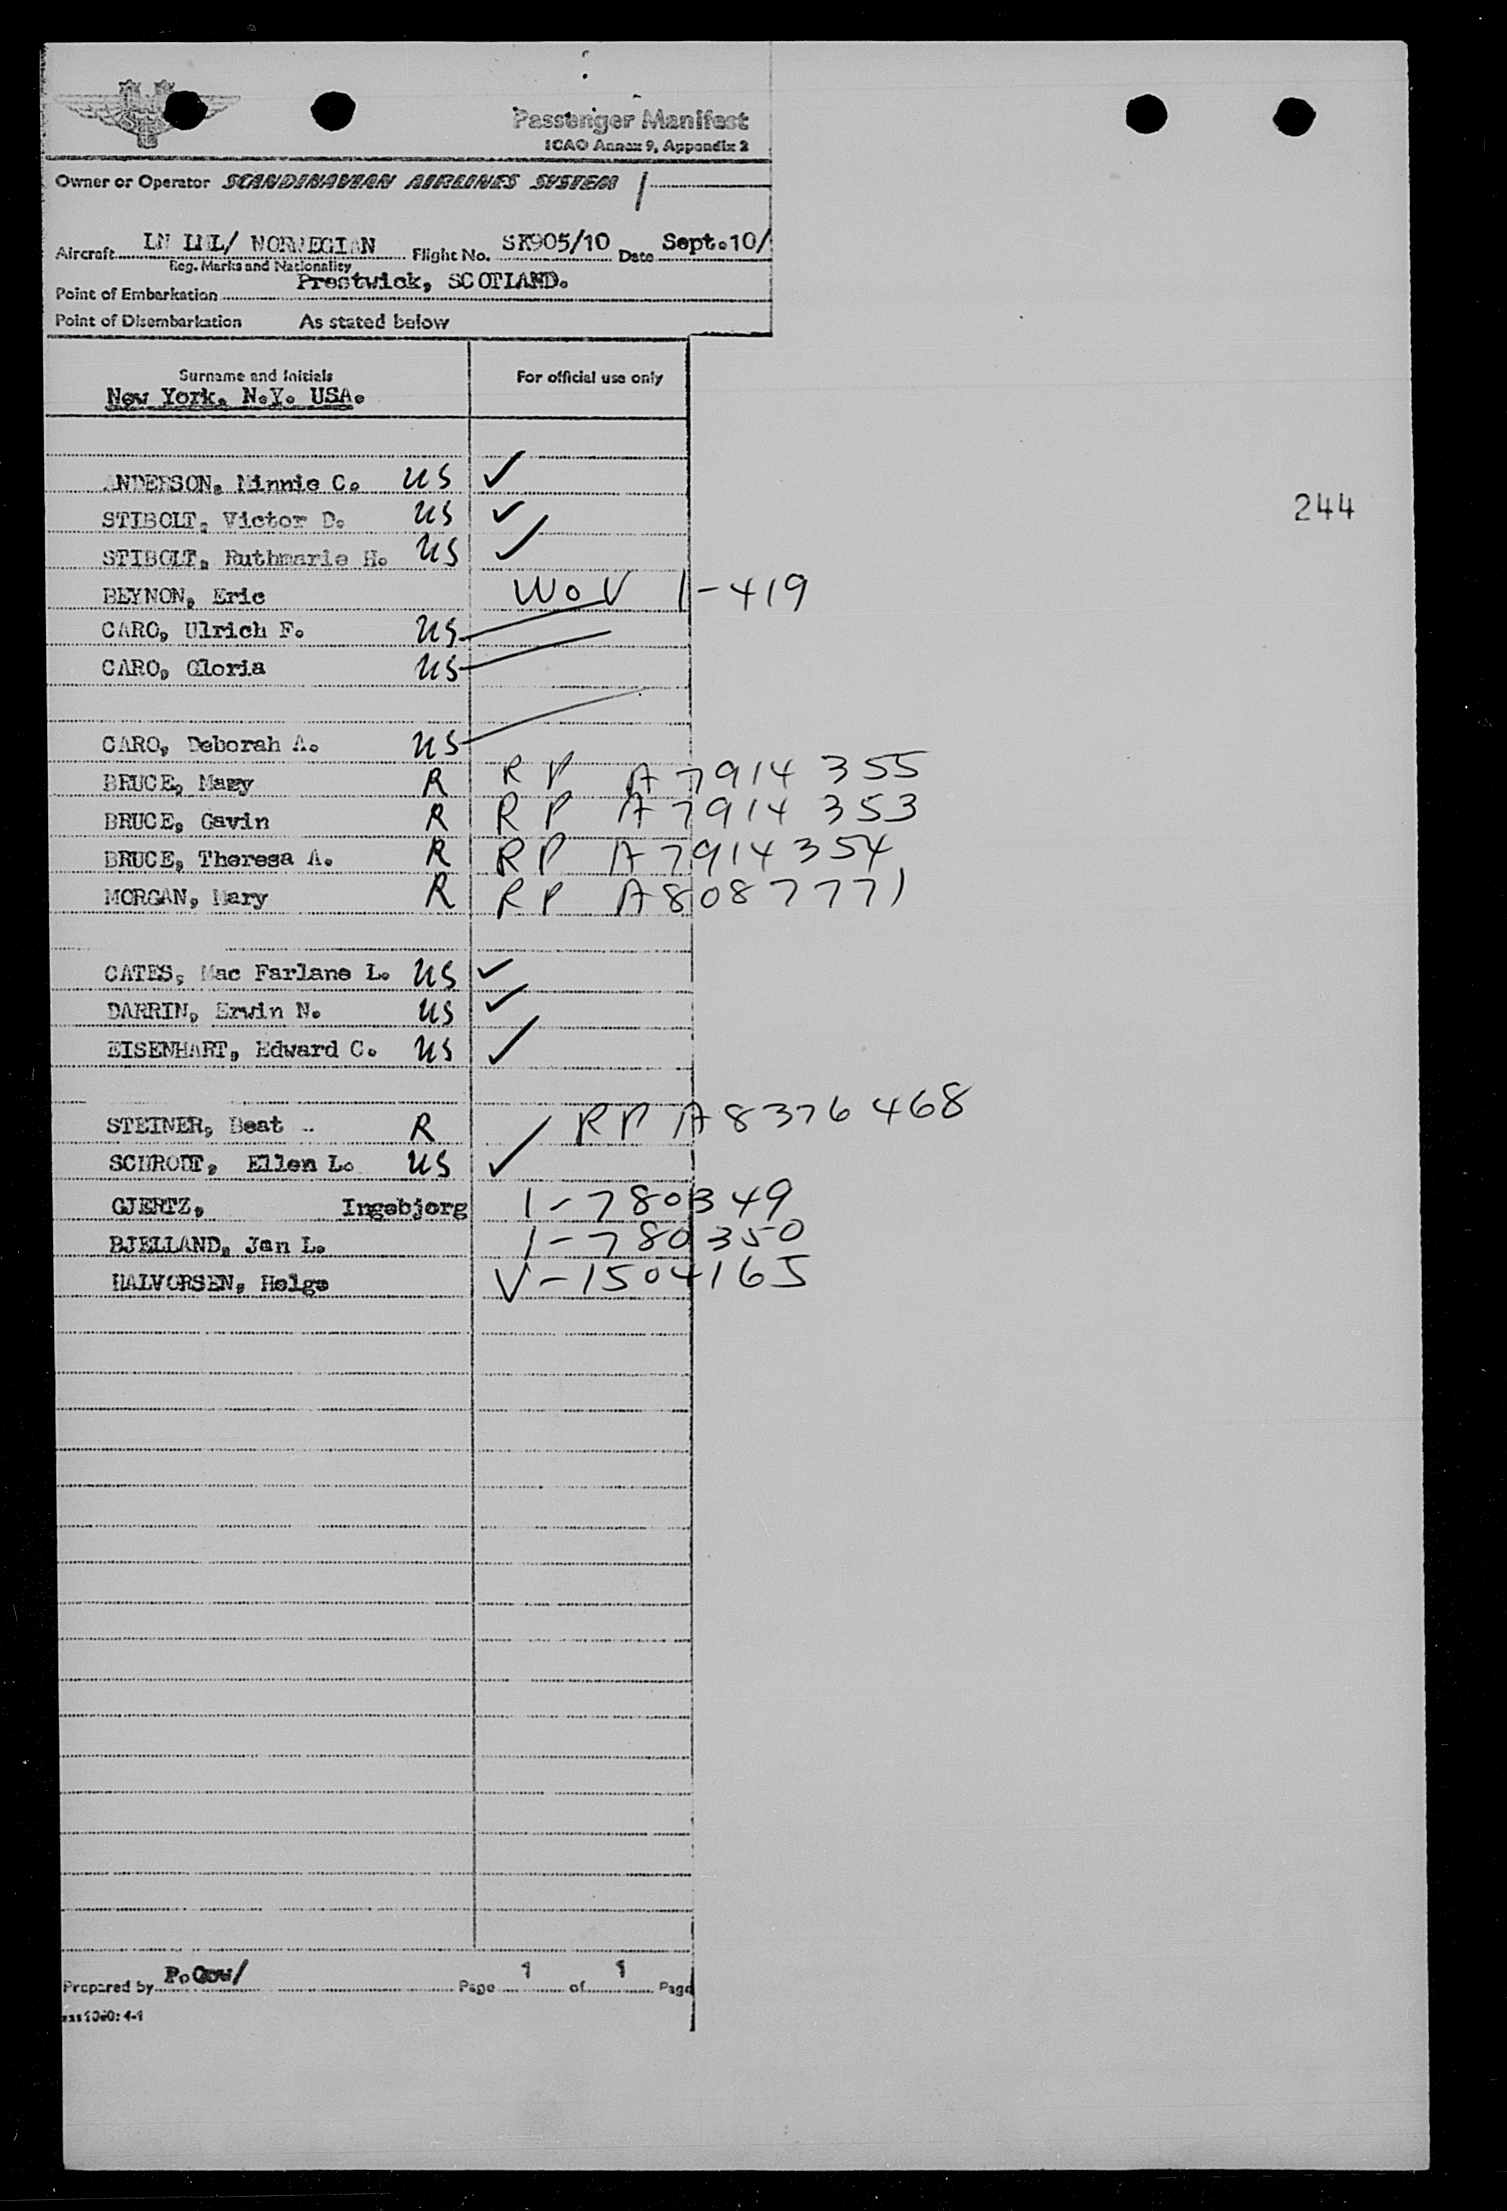 Passenger Manifest
ICAO Annex 9, Appendix 2
Owner or Operator SCANDINAVIAN AIRLINES SYSTEM
Aircraft LN LML/ NORWEGIAN Flight No. SK905/10 Date Sept.10/
Reg. Marks and Nationality
Point of Embarkation Prestwick, SCOTLAND.
Point of Disembarkation As stated below
Surname and initials For official use only
New York, N.Y. USA.
ANDERSON, Minnie C. US ✓
244
STIBOLT, Victor D. US ✓
STIBOLT, Ruthmarie H. US ✓
BEYNON, Eric WoV 1-419
CARO, Ulrich F. US
CARO, Gloria US
CARO, Deborah A. US
BRUCE, Mary R RP A7914 355
BRUCE, Gavin R RP A7914 353
BRUCE, Theresa A. R RP A7914354
MORGAN, Mary R RP A8087771
CATES, Mac Farlane L. US ✓
DARRIN, Erwin N. US ✓
EISENHART, Edward C. US ✓
STEINER, Beat R RP A8376468
SCHRODT, Ellen L. US ✓
GJERTZ, Ingebjorg 1-780349
BJELLAND, Jan L. 1-780350
HALVORSEN, Helge V-1504165
Prepared by P.Gow/ Page 1 of 1 Page